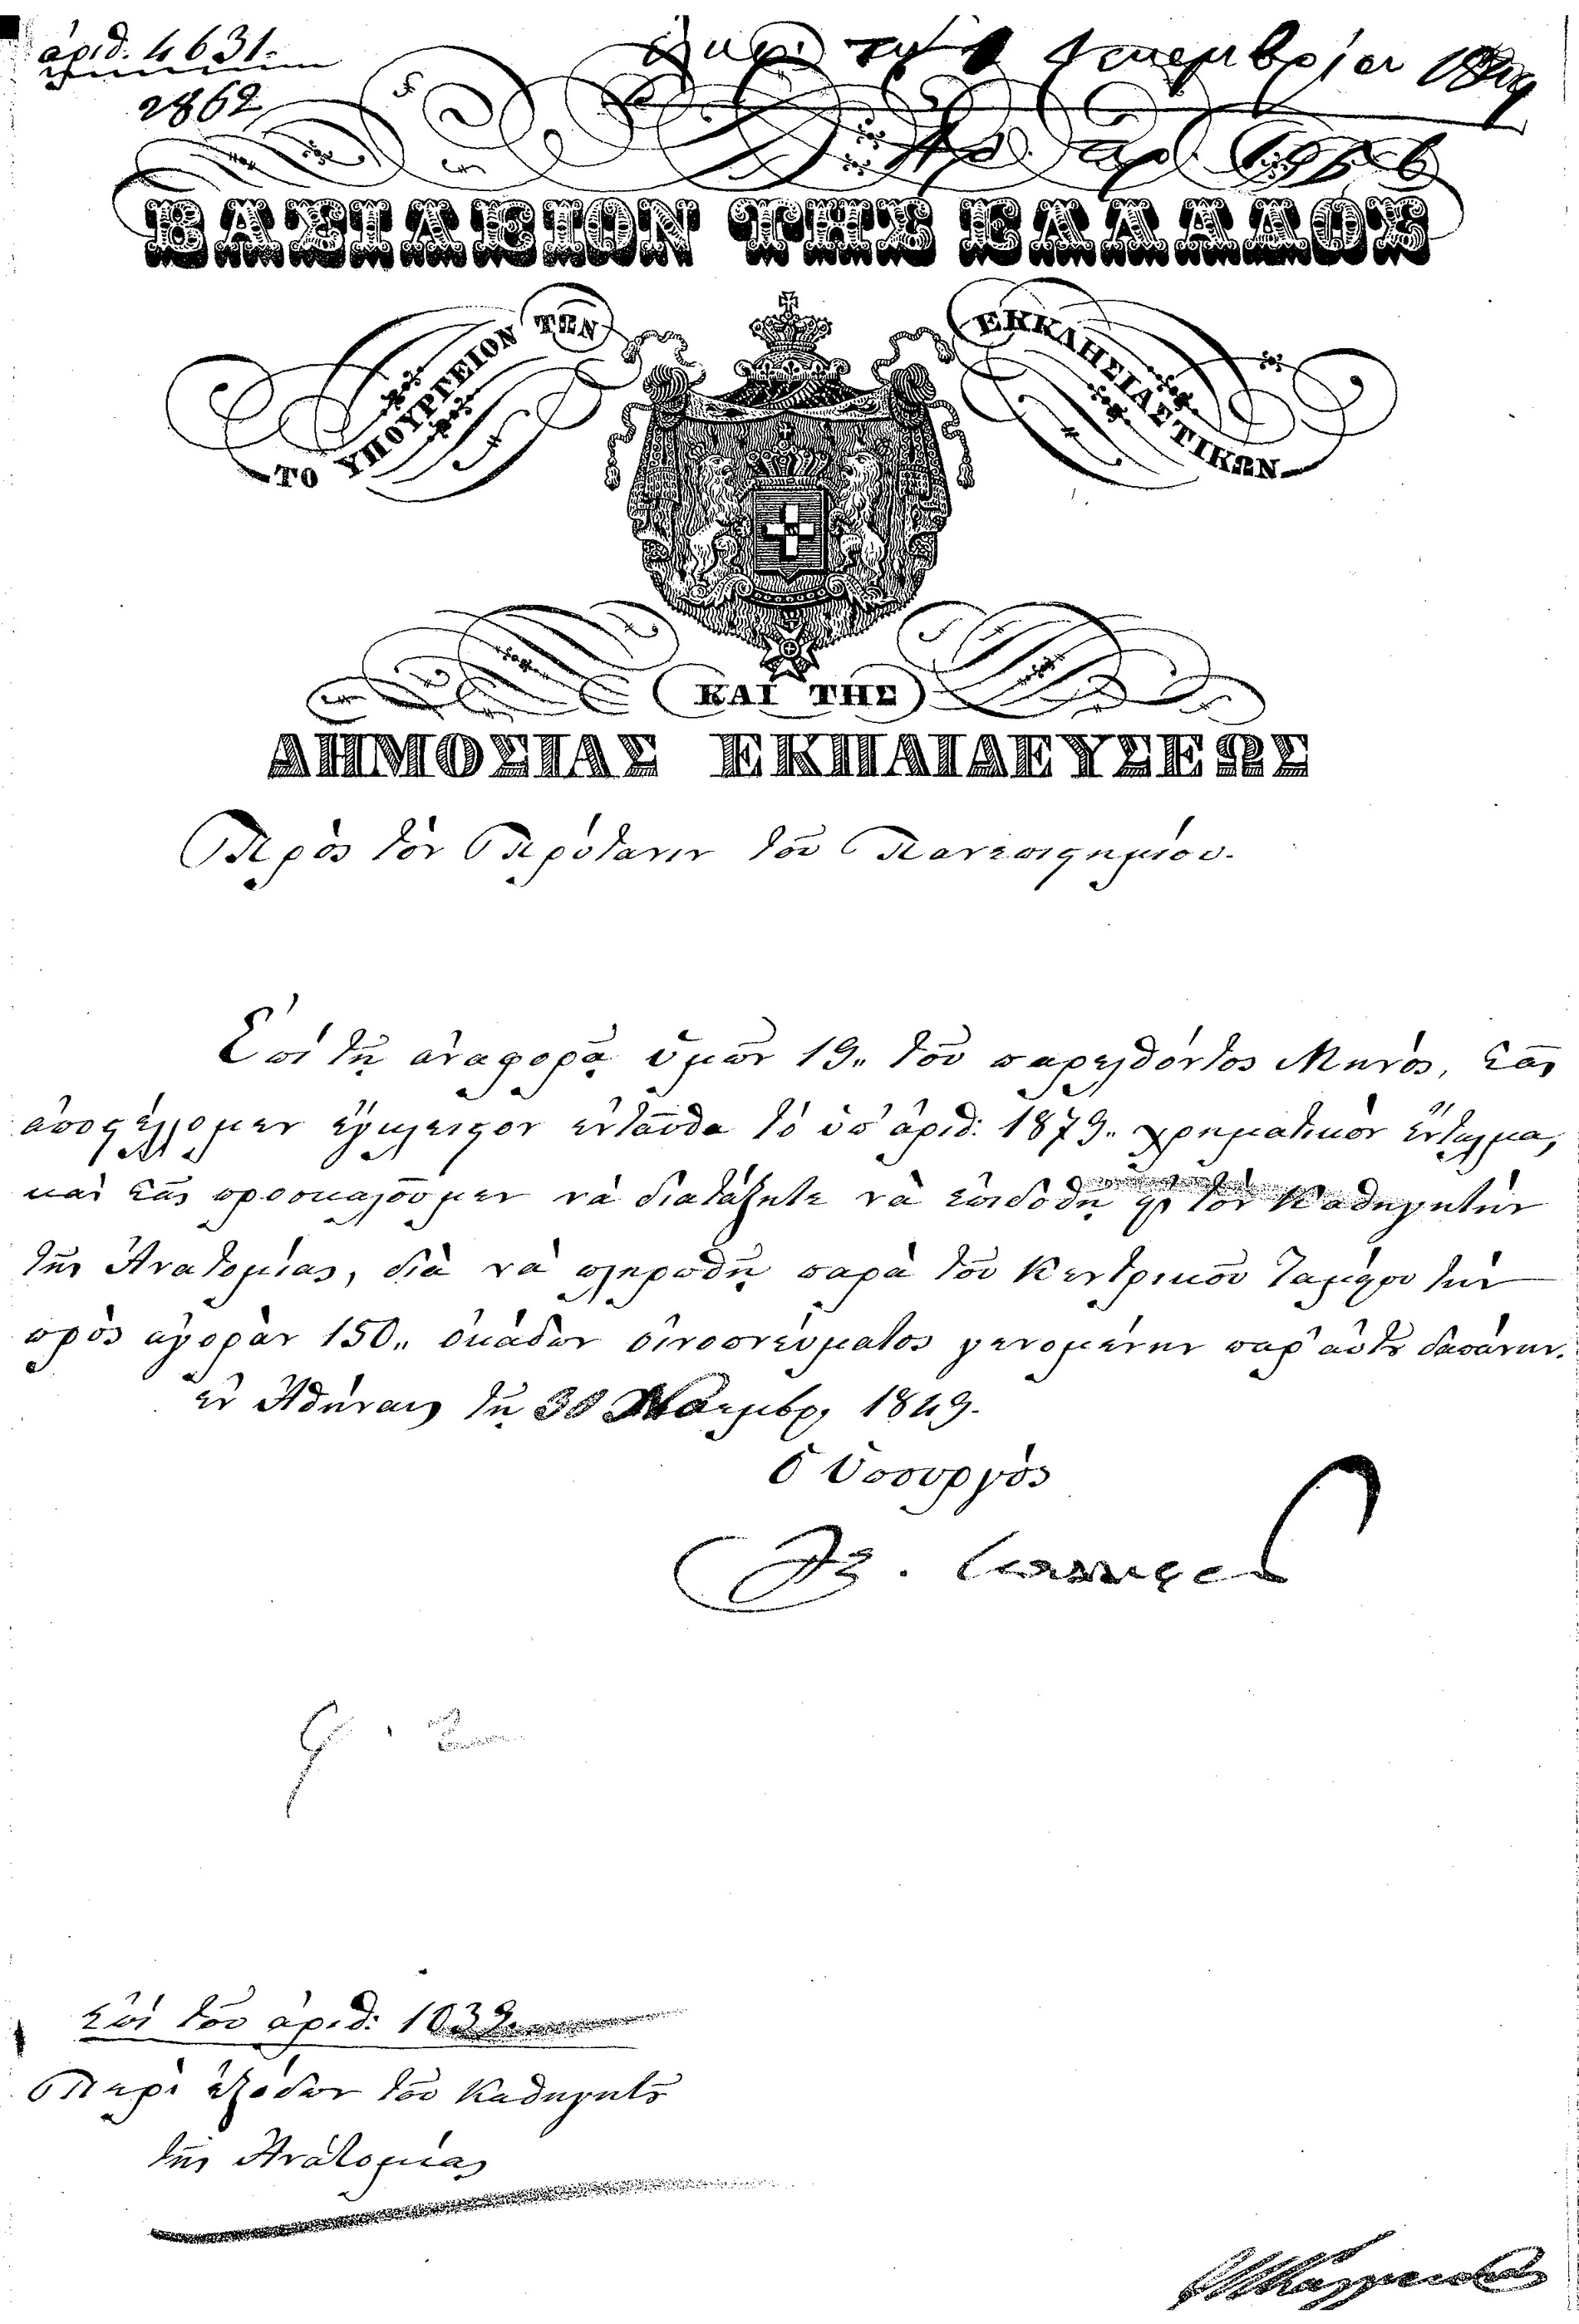 ἀριθ. 4631.
2862
ΒΑΣΙΛΕΙΟΝ ΤΗΣ ΕΛΛΑΔΟΣ
ΤΟ ΥΠΟΥΡΓΕΙΟΝ ΤΩΝ ΕΚΚΛΗΣΙΑΣΤΙΚΩΝ
ΚΑΙ ΤΗΣ
ΔΗΜΟΣΙΑΣ ΕΚΠΑΙΔΕΥΣΕΩΣ
Πρὸς τὸν Πρύτανιν τοῦ Πανεπιστημίου.
Ἐπὶ τῇ ἀναφορᾷ ὑμῶν 19., τοῦ παρελθόντος Μηνὸς, σᾶς
ἀποστέλλομεν ἔγκλειστον ἐνταῦθα τὸ ὑπ' ἀριθ: 1879., χρηματικὸν ἔνταλμα,
καὶ σᾶς προσκαλοῦμεν νὰ διατάξητε νὰ ἐπιδοθῇ εἰς τὸν Καθηγητὴν
τῆς Ἀνατομίας, διὰ νὰ πληρωθῇ παρὰ τοῦ Κεντρικοῦ Ταμείου τὴν
πρὸς ἀγορὰν 150., ὀκάδων οἰνοπνεύματος γενομένην παρ' αὐτοῦ δαπάνην.
ἐν Ἀθήναις τῇ 30 Νοεμβρ. 1849.
Ὁ Ὑπουργὸς
ἐπὶ τοῦ ἀριθ: 1039.
Περὶ ἐξόδων τοῦ Καθηγητοῦ
τῆς Ἀνατομίας